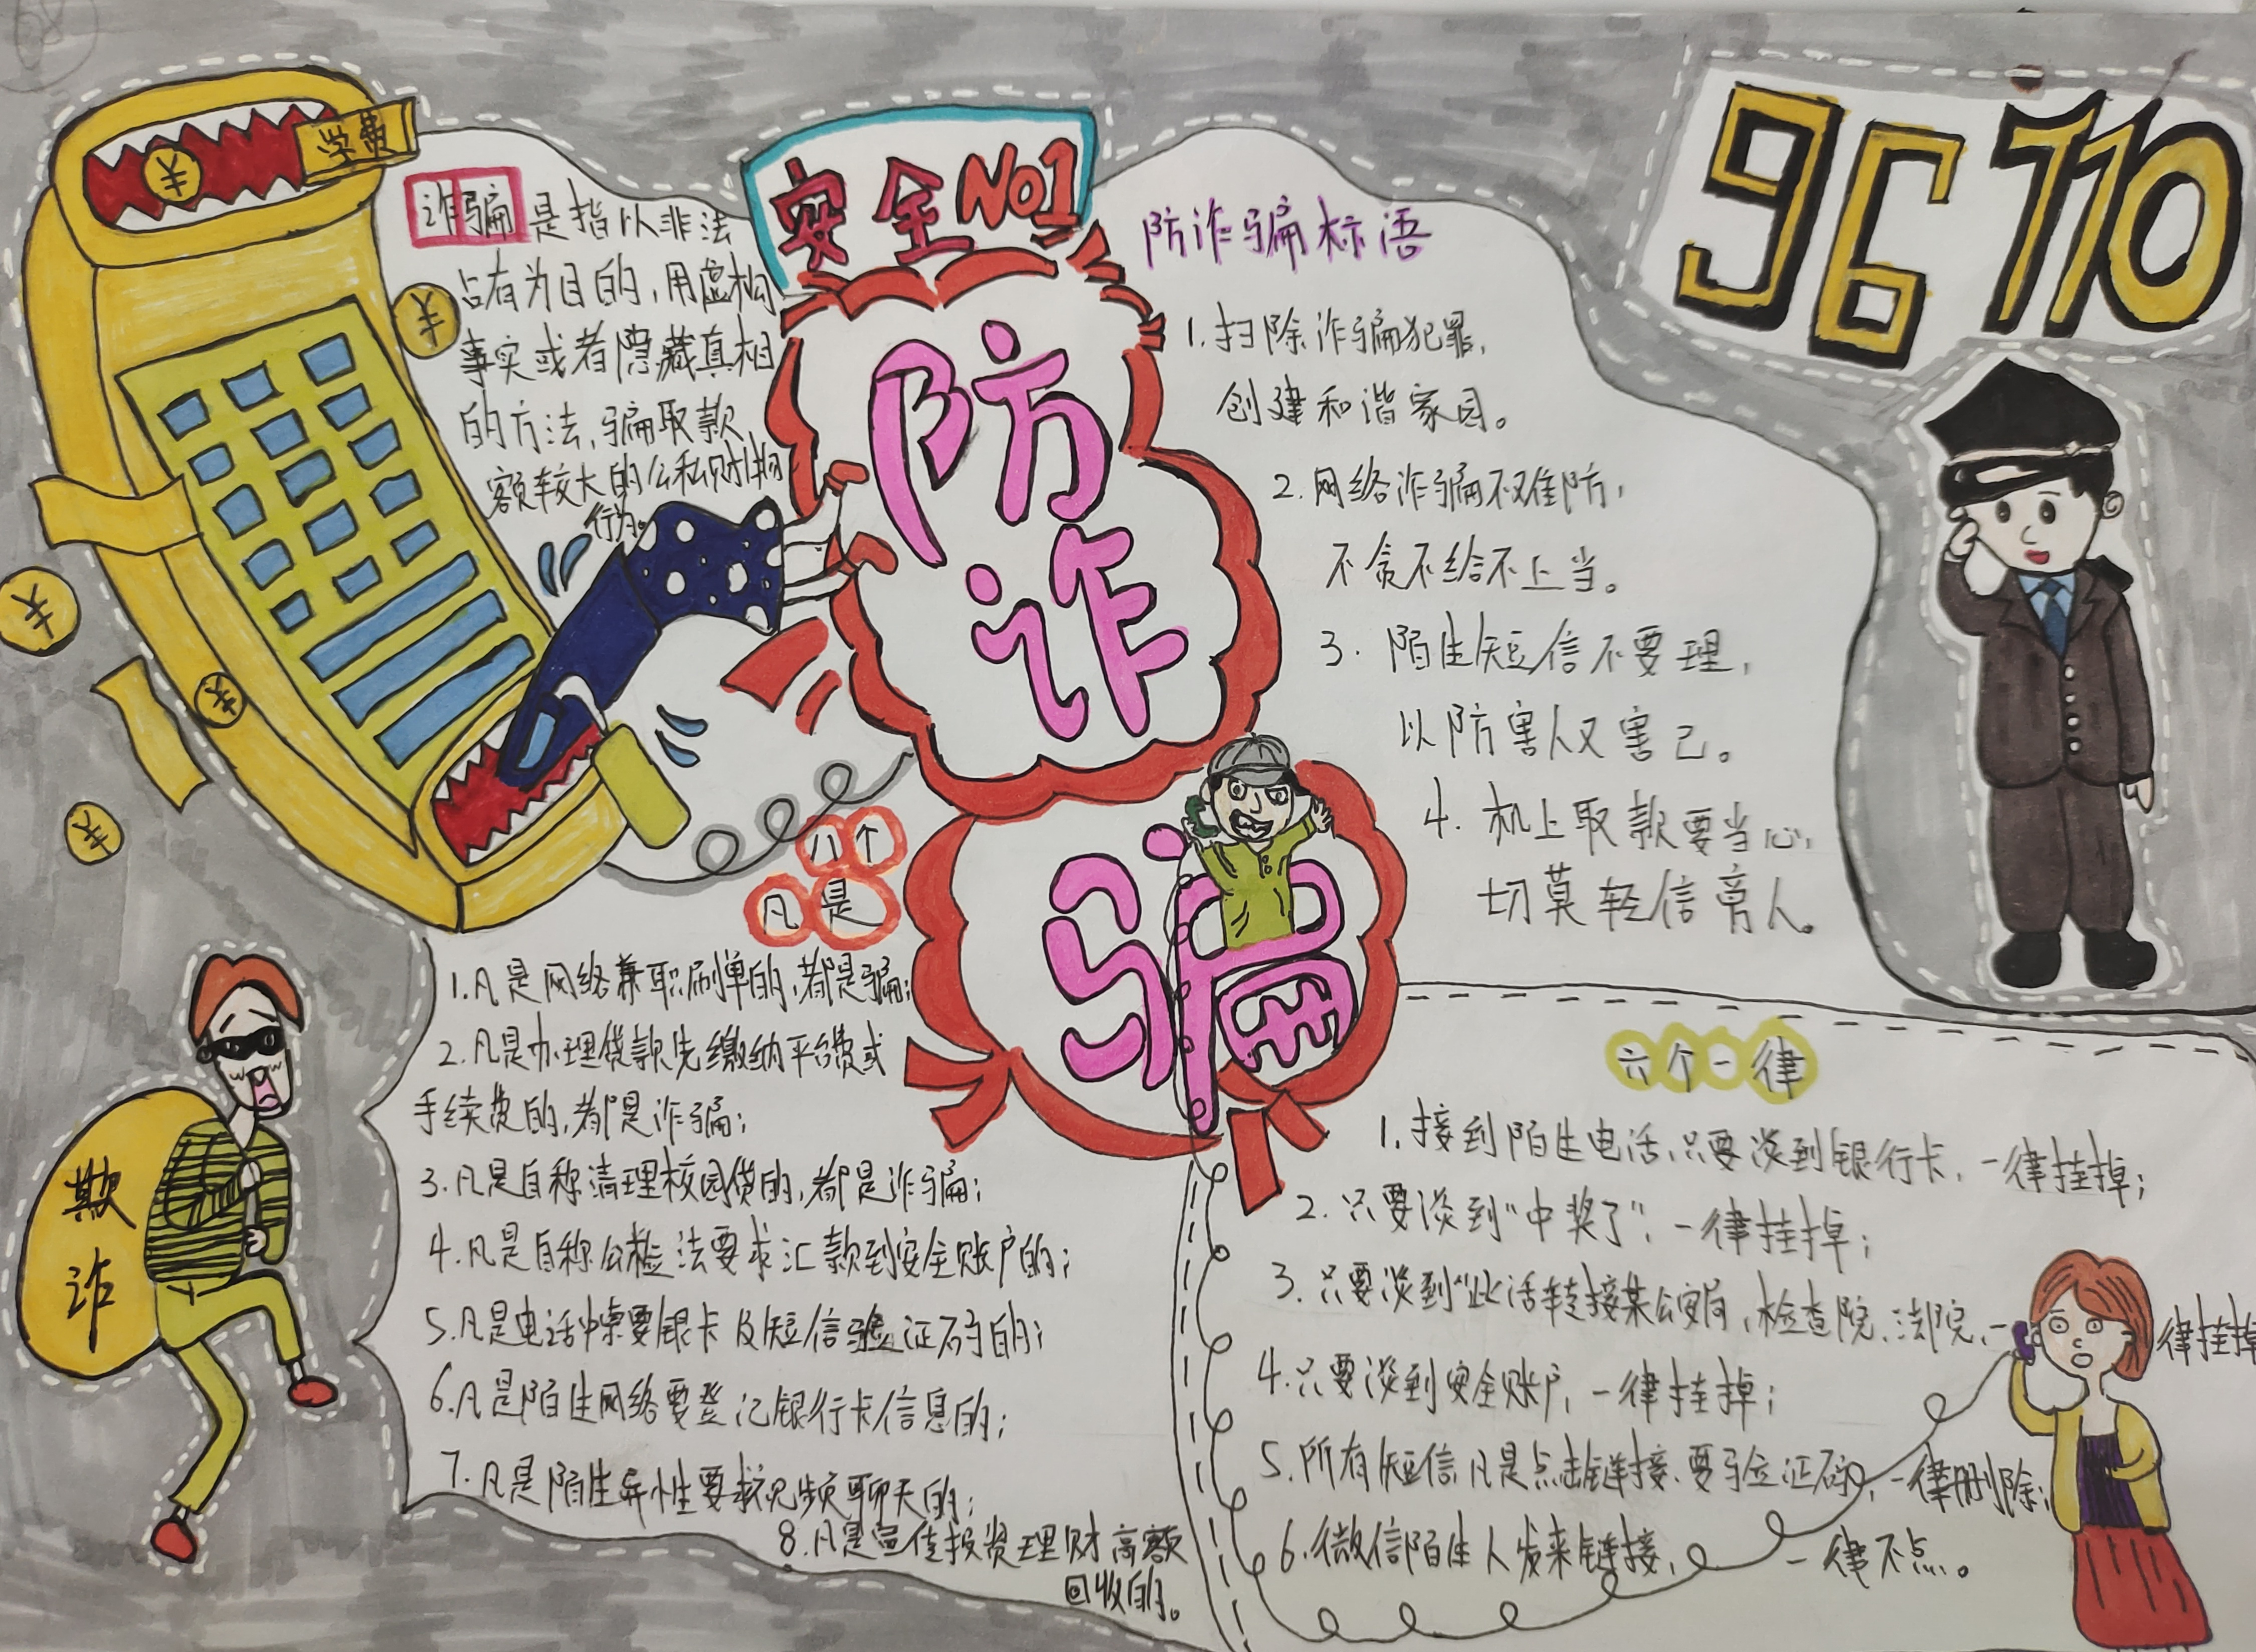 68
学费
¥
¥
¥
¥
¥
诈骗是指以非法
占有为目的，用虚构
事实或者隐藏真相
的方法，骗取款
额较大的公私财物
行为。
安全No1
防
诈
骗
96110
防诈骗标语
1.扫除诈骗犯罪，
创建和谐家园。
2.网络诈骗不难防，
不贪不给不上当。
3.陌生短信不要理，
以防害人又害己。
4.机上取款要当心，
切莫轻信旁人。
八个
凡是
1.凡是网络兼职刷单的，都是骗；
2.凡是办理贷款先缴纳平台费或
手续费的，都是诈骗；
3.凡是自称清理校园贷的，都是诈骗；
4.凡是自称公检法要求汇款到安全账户的；
5.凡是电话中索要银卡及短信验证码的；
6.凡是陌生网络要登记银行卡信息的；
7.凡是陌生异性要求视频聊天的；
8.凡是宣传投资理财高额
回收的。
欺
诈
六个一律
1.接到陌生电话，只要谈到银行卡，一律挂掉；
2.只要谈到“中奖了”，一律挂掉；
3.只要谈到“此话转接某公安局，检查院、法院，一律挂掉
4.只要谈到安全账户，一律挂掉；
5.所有短信，凡是点击链接、要验证码，一律删除；
6.微信陌生人发来链接，一律不点。